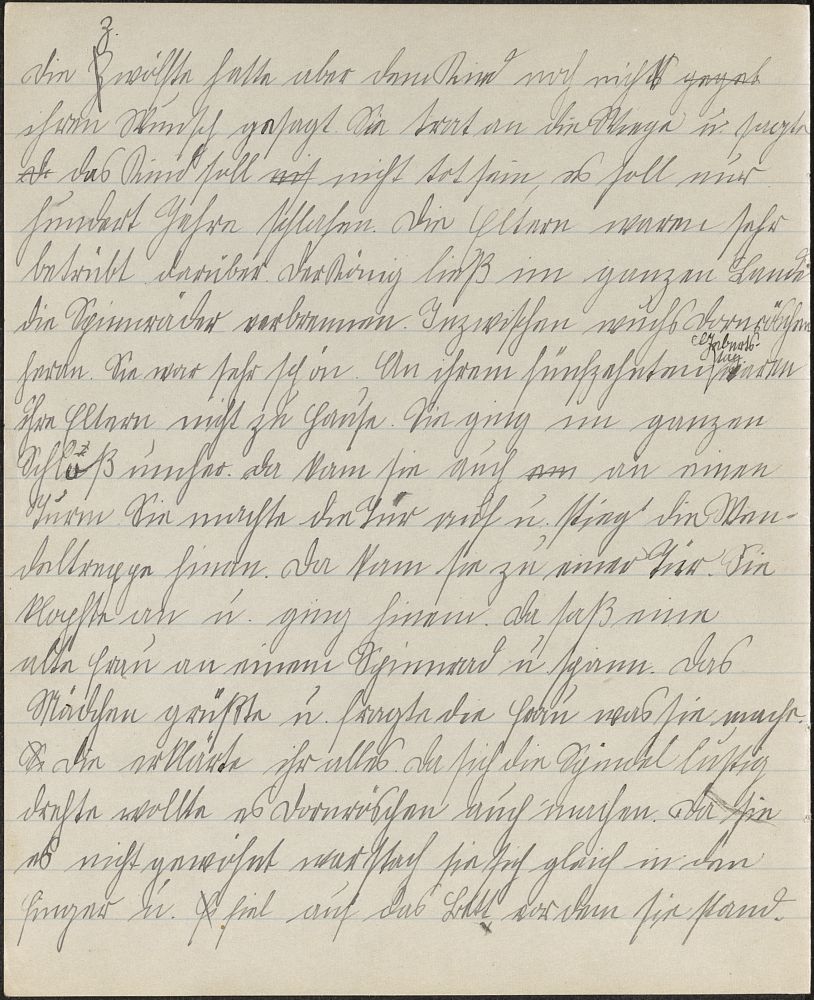 3.
Die Zwölfte hatte aber dem Kind noch nichts gegeb
ihren Wunsch gesagt. Sie trat an die Wiege u. sagte
das Kind soll nicht tot sein, es soll nur
hundert Jahre schlafen. Die Eltern waren sehr
betrübt darüber. Der König ließ im ganzen Lande
die Spinnräder verbrennen. Inzwischen wuchs Dornröschen
heran. Sie war sehr schön. An ihrem fünfzehnten Geburtstag waren
ihre Eltern nicht zu Hause. Sie ging im ganzen
Schloß umher. Da kam sie auch an einen
Turm. Sie machte die Tür auf u. stieg die Wen-
deltreppe hinan. Da kam sie zu einer Tür. Sie
klopfte an u. ging hinein. Da saß eine
alte Frau an einem Spinnrad u. spann. Das
Mädchen grüßte u. fragte die Frau was sie mache.
Die erklärte ihr alles. Da sich die Spindel lustig
drehte wollte es Dornröschen auch machen. Da sie
es nicht gewöhnt war stach sie sich gleich in den
Finger u. fiel auf das Bett vor dem sie stand.